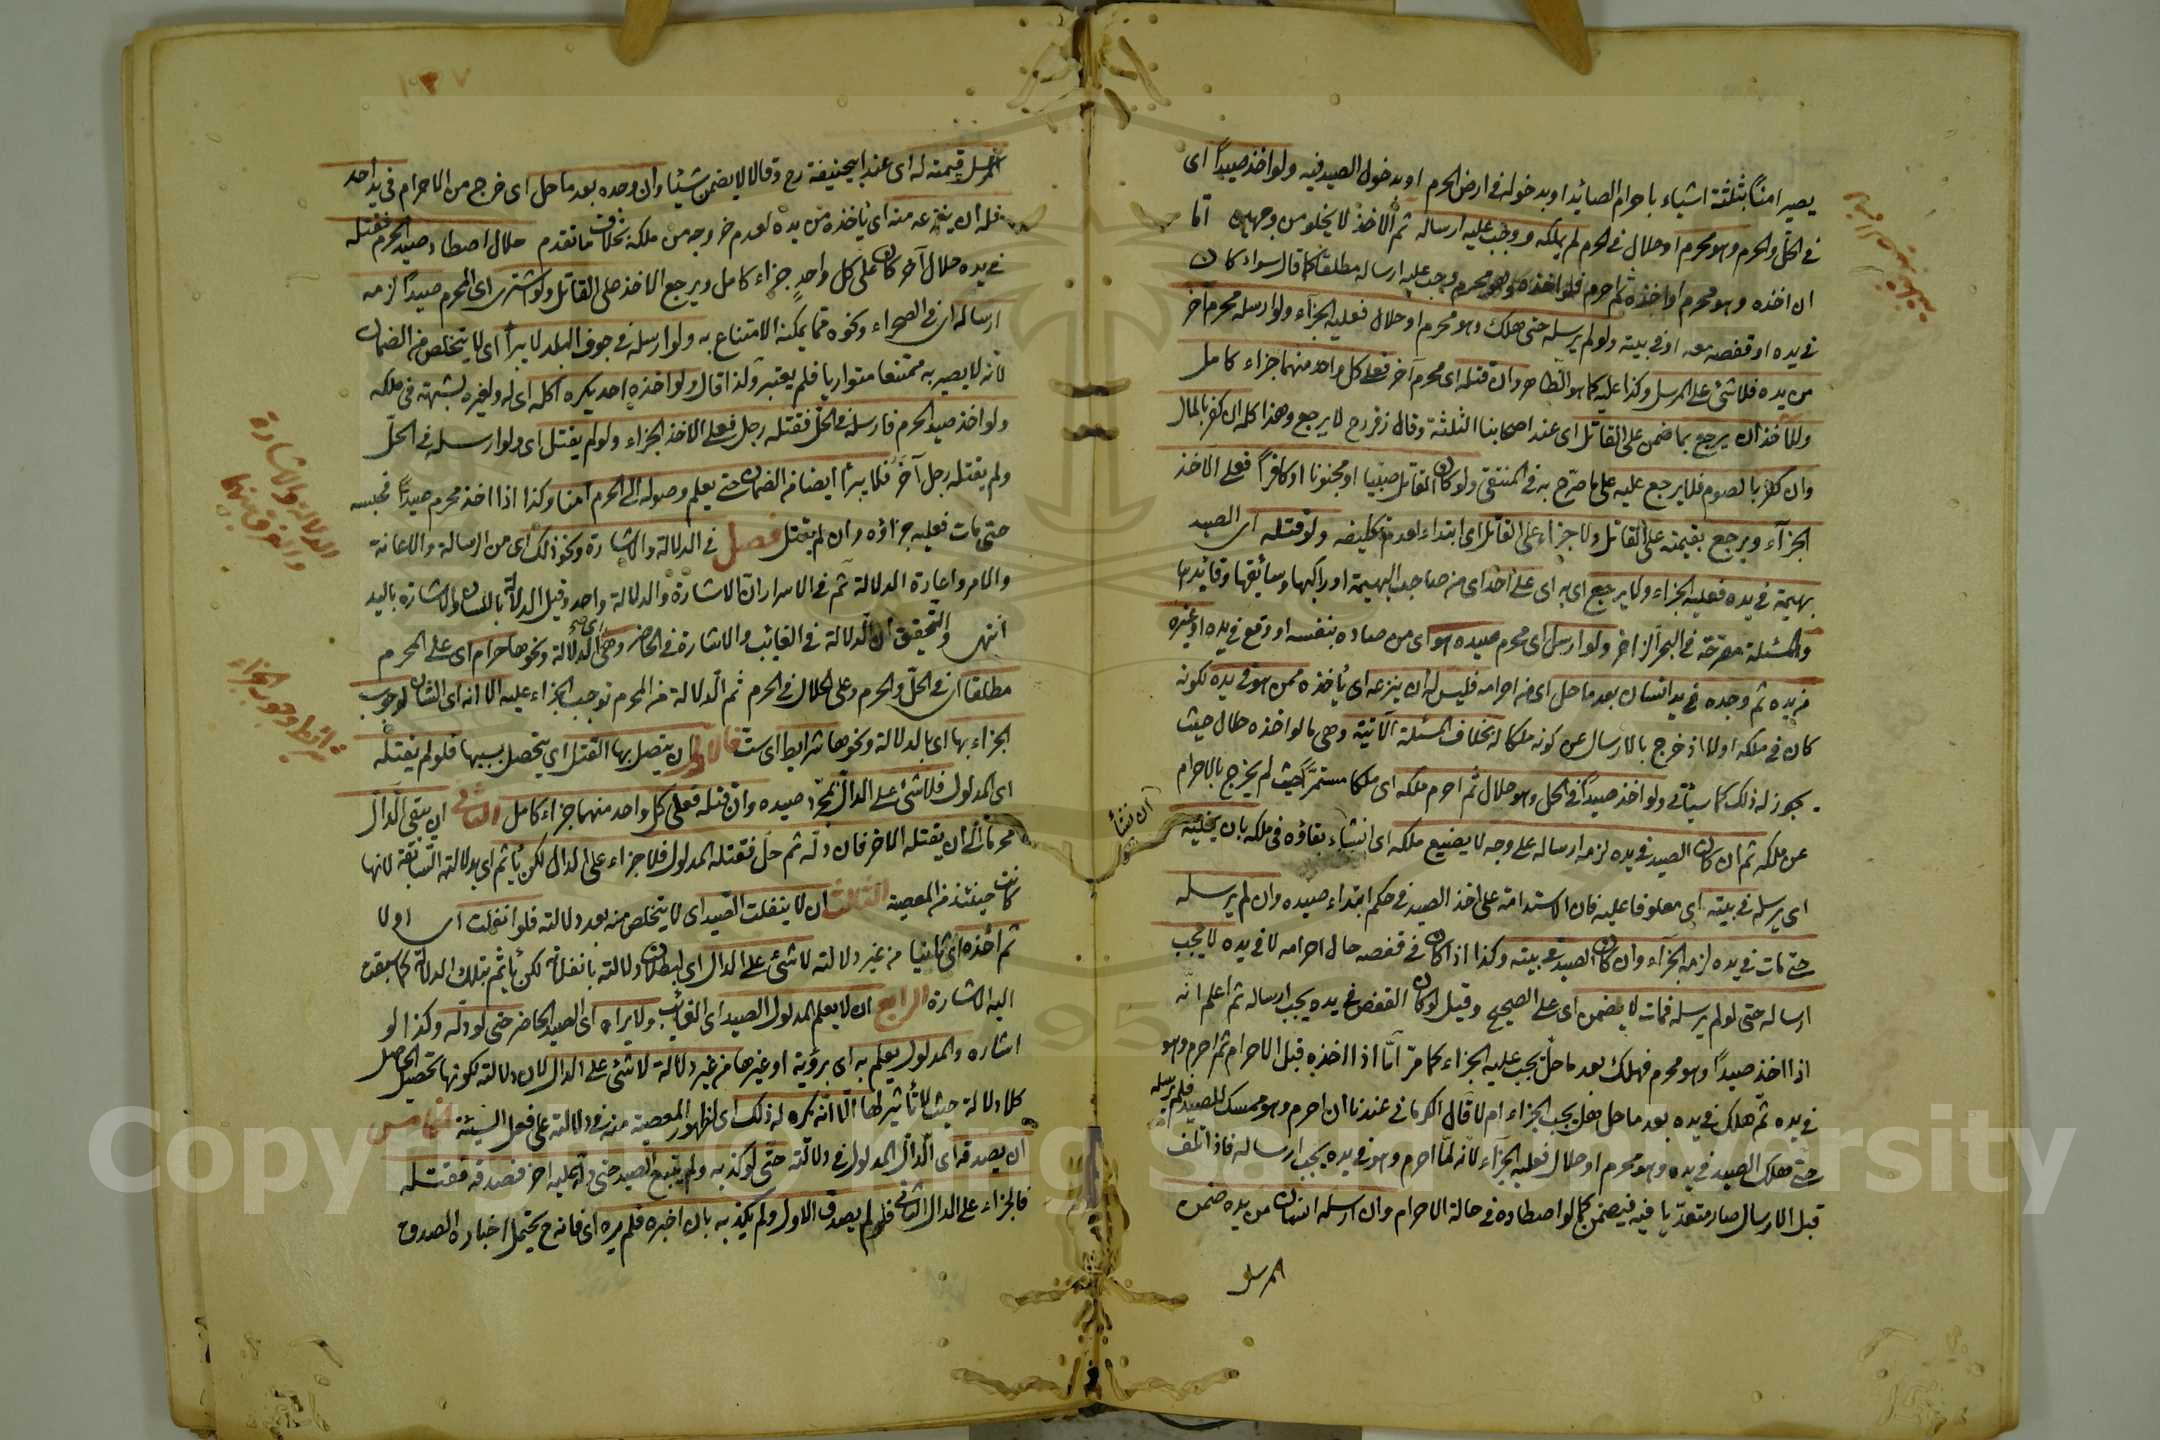 يصير امنا بثلثة اشياء باحرام الصائد او بدخوله في ارض الحرم او بدخول الصيد فيه ولو اخذ صيدا اى
في الحل والحرم وهو محرم او حلال في الحرم لم يملكه ووجب عليه ارساله ثم الاخذ لا يخلو من وجهين اما
ان اخذه وهو محرم او اخذه ثم احرم فلو اخذه وهو محرم وجب عليه ارساله مطلقا كما قال سواء كان
في يده او قفصه معه او في بيته ولو لم يرسله حتى هلك وهو محرم او حلال فعليه الجزاء ولو ارسله محرم آخر
من يده فلا شئ على المرسل وكذا عليه كما هو الظاهر وان قتله اى محرم آخر فعلى كل واحد منهما جزاء كامل
وللآخذ ان يرجع بما ضمن على القاتل اى عند اصحابنا الثلثة وقال زفر رح لا يرجع وهذا كله ان كفر بالمال
وان كفر بالصوم فلا يرجع عليه على ما صرح به في المنتقى ولو كان القاتل صبيا او مجنونا او كافرا فعلى الآخذ
الجزآء ويرجع بقيمته على القاتل ولا جزاء على القاتل اى ابتداء لعدم تكليفه ولو قتله اى الصيد
بهيمة في يده فعليه الجزاء ولا يرجع اى به اى على احد اى من صاحب البهيمة او راكبها وسائقها وقائدها
والمسئلة مصرحة في البحر الزاخر ولو ارسل اى محرم صيده هو اى من صاده بنفسه او وقع في يده او غيره
من يده ثم وجده في يد انسان بعد ما حل اى من احرامه فليس له ان ينزعه اى يأخذه ممن هو في يده لكونه
كان في ملكه اولا اذ خرج بالارسال عن كونه ملكا له بخلاف المسئلة الآتية وهى ما لو اخذه حلال حيث
يجوز له ذلك كما سيأتى ولو اخذ صيدا في الحل وهو حلال ثم احرم ملكه اى ملكا مستمرا حيث لم يخرج بالاحرام
عن ملكه ثم ان كان الصيد في يده لزمه ارساله على وجه لا يضيع ملكه اى انشاء بقاؤه في ملكه بان يخليه
اى يرسله في بيته اى معلوفا عليه فان الاستدامة على اخذ الصيد في حكم ابتداء صيده وان لم يرسله
حتى مات في يده لزمه الجزآء وان كان الصيد في بيته وكذا اذا كان في قفصه حال احرامه لا في يده لا يجب
ارساله حتى لو لم يرسله فمات لا يضمن اى على الصحيح وقيل لو كان القفص في يده يجب ارساله ثم اعلم انه
اذا اخذ صيدا وهو محرم فهلك بعد ما حل يجب عليه الجزاء كما مر اما اذا اخذه قبل الاحرام ثم احرم وهو
في يده ثم هلك في يده بعد ما حل هل يجب الجزاء ام لا قال الكرمانى عندنا ان احرم وهو ممسك للصيد فلم يرسله
حتى هلك الصيد في يده وهو محرم او حلال فعليه الجزآء لانه لما احرم وهو في يده يجب ارساله فاذا تلف
قبل الارسال صار متعديا فيه فيضمن كما لو اصطاده في حالة الاحرام وان ارسله انسان من يده ضمن
المرسل
المرسل قيمته له اى عند ابيحنيفة رح وقالا لا يضمن شيئا وان وجده بعد ما حل اى خرج من الاحرام في يد احد
فله ان ينزعه منه اى يأخذه من يده لعدم خروجه من ملكه بخلاف ما تقدم حلال اصطاد صيد الحرم فقتله
في يده حلال آخر كان على كل واحد جزاء كامل ويرجع الاخذ على القاتل ولو اشترى اى المحرم صيدا لزمه
ارساله اى في الصحراء ونحوه مما يمكنه الامتناع به ولو ارسله في جوف البلد لا يبرأ اى لا يتخلص من الضمان
لانه لا يصير به ممتنعا متواريا فلم يعتبر ولذا قال ولو اخذه احد يكره اكله اى له ولغيره لشبهة في ملكه
ولو اخذ صيد الحرم فارسله في الحل فقتله رجل فعلى الاخذ الجزاء ولو لم يقتل اى ولو ارسله في الحل
ولم يقتله رجل آخر فلا يبرأ ايضا من الضمان حتى يعلم وصوله الى الحرم امنا وكذا اذا اخذ محرم صيدا فحبسه
حتى مات فعليه جزاؤه وان لم يقتل فصل في الدلالة والاشارة ونحو ذلك اى من الرسالة والاعانة
والامر واعارة الدلالة ثم في الاسرار ان الاشارة والدلالة واحد وقيل الدلالة باللسان والاشارة باليد
انتهى والتحقيق ان الدلالة في الغائب والاشارة في الحاضر وهى اى الدلالة ونحوها حرام اى على المحرم
مطلقا اى في الحل والحرم وعلى الحلال في الحرم ثم الدلالة من المحرم توجب الجزاء عليه الا انه اى الشان لوجوب
الجزاء بها اى بالدلالة ونحوها شرايط اى ست فالاول ان يتصل بها القتل اى يتحصل بسببها فلو لم يقتله
اى المدلول فلا شئ على الدال بمجرد صيده وان قتله فعلى كل واحد منهما جزاء كامل الثانى ان يبقى الدال
محرما الى ان يقتله الاخر فان دله ثم حل فقتله المدلول فلا جزاء على الدال لكن يأثم اى بدلالته السابقة لانها
كانت حينئذ من المعصية الثالث ان لا ينفلت الصيد اى لا يتخلص منه بعد دلالته فلو انفلت اى اولا
ثم اخذه اى ثانيا من غير دلالته لا شئ على الدال اى لبطلان دلالته بانفلاته لكن يأثم بتلك الدلالة كما سبقت
اليه الاشارة الرابع ان لا يعلم المدلول الصيد اى الغائب ولا يراه اى الصيد الحاضر حتى لو دله وكذا لو
اشاره والمدلول يعلم به اى برؤية او غيرها من غير دلالة لا شئ على الدال لان دلالته لكونها تحصيل الحاصل
كلا دلالة حيث لا تأثير لها الا انه يكره له ذلك اى لظهور المعصية منه في دلالته على فعل السيئة الخامس
ان يصدقه اى الدال المدلول في دلالته حتى لو كذبه ولم يتبع الصيد حتى دله عليه اخر فصدقه فقتله
فالجزاء على الدال الثانى فلو لم يصدق الاول ولم يكذبه بان اخبره فلم يره اى فانه ح يحتمل اخباره الصدق
الدلالة والاشارة
والفرق بينهما
شرائط وجوب الجزاء